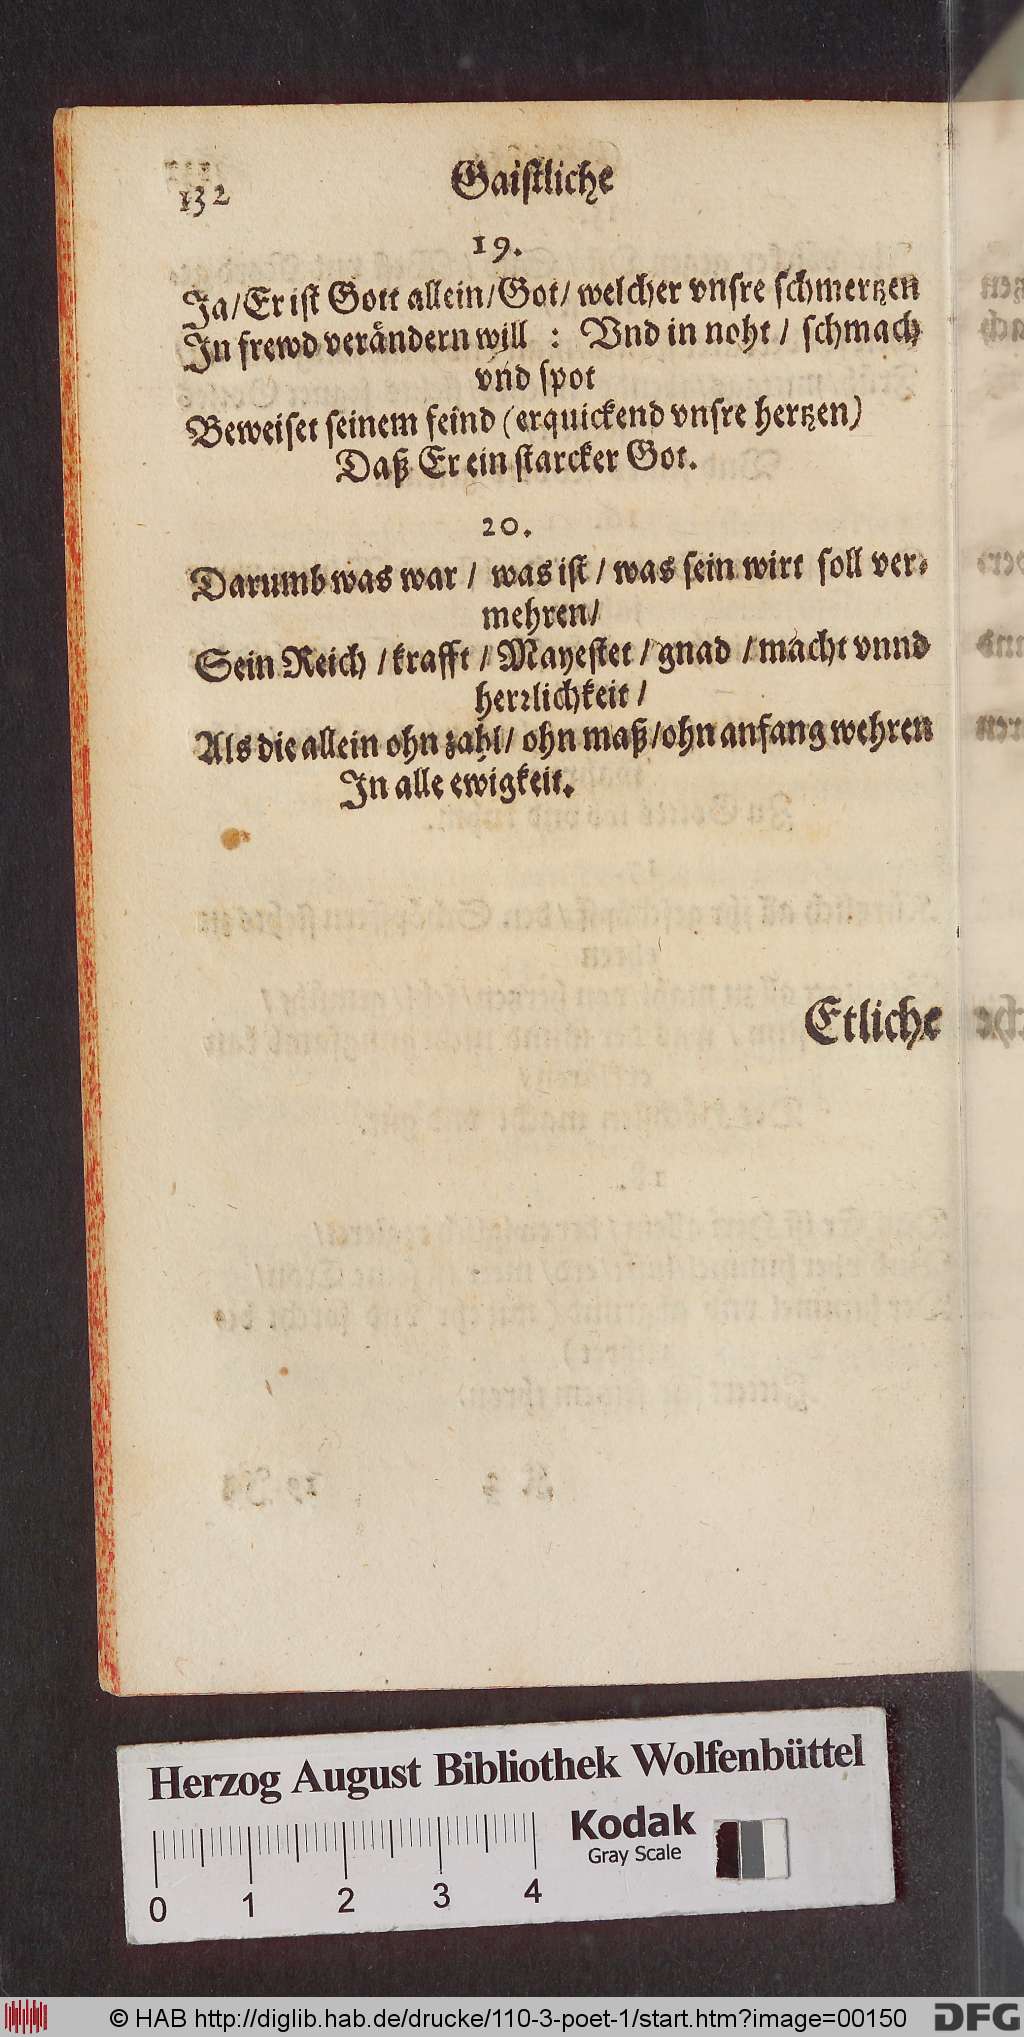 132
Gaistliche
19.
Ja/Er ist Gott allein/Got/ welcher vnsre schmertzen
In frewd verändern will : Vnd in noht / schmach
vnd spot
Beweiset seinem feind (erquickend vnsre hertzen)
Daß Er ein starcker Got.
20.
Darumb was war / was ist / was sein wirt soll ver-
mehren/
Sein Reich / krafft / Mayestet / gnad / macht vnnd
herrlichkeit /
Als die allein ohn zahl/ ohn maß/ohn anfang wehren
In alle ewigkeit.
Etliche
Herzog August Bibliothek Wolfenbüttel
Kodak
Gray Scale
0 1 2 3 4
© HAB http://diglib.hab.de/drucke/110-3-poet-1/start.htm?image=00150
DFG